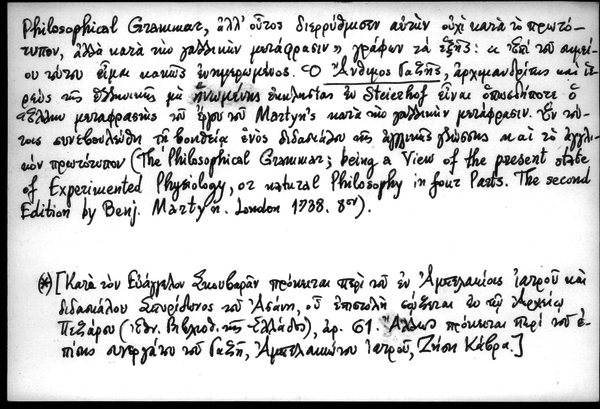 Philosophical Grammar, ἀλλ' οὗτος διερρύθμισεν αὐτὴν οὐχὶ κατὰ τὸ πρωτό-
τυπον, ἀλλὰ κατὰ τὴν γαλλικὴν μετάφρασιν» γράφων τὰ ἑξῆς: « Ἐπὶ τοῦ σημεί-
ου τούτου εἶμαι κακῶς ἐνημερωμένος. Ὁ Ἄνθιμος Γαζῆς, ἀρχιμανδρίτης καὶ ἱε-
ρεὺς τῆς Ἑλληνικῆς μὴ ἡνωμένης ἐκκλησίας ἐν Steierhof εἶναι ὁπωσδήποτε ὁ
Ἕλλην μεταφραστὴς τοῦ ἔργου τοῦ Martyn's κατὰ τὴν γαλλικὴν μετάφρασιν. Ἐν τού-
τοις συνεβουλεύθη τῇ βοηθείᾳ ἑνὸς διδασκάλου τῆς ἀγγλικῆς γλώσσης καὶ τὸ ἀγγλι-
κὸν πρωτότυπον (The Philosophical Grammar; being a View of the present state
of Experimented Physiology, or natural Philosophy in four Parts. The second
Edition by Benj. Martyn. London 1738. 8ον).
(*) [Κατὰ τὸν Εὐάγγελον Σκουβαρᾶν πρόκειται περὶ τοῦ ἐν Ἀμπελακίοις ἰατροῦ καὶ
διδασκάλου Σπυρίδωνος τοῦ Ἀσάνη, οὗ ἐπιστολὴ σῴζεται ἐν τῷ Ἀρχείῳ
Πεζάρου (Ἐθν. Βιβλιοθ. τῆς Ἑλλάδος), ἀρ. 61. Ἄλλως πρόκειται περὶ τοῦ ἐ-
πίσης συνεργάτου τοῦ Γαζῆ, Ἀμπελακιώτου ἰατροῦ, Ζήση Κάβρα.]